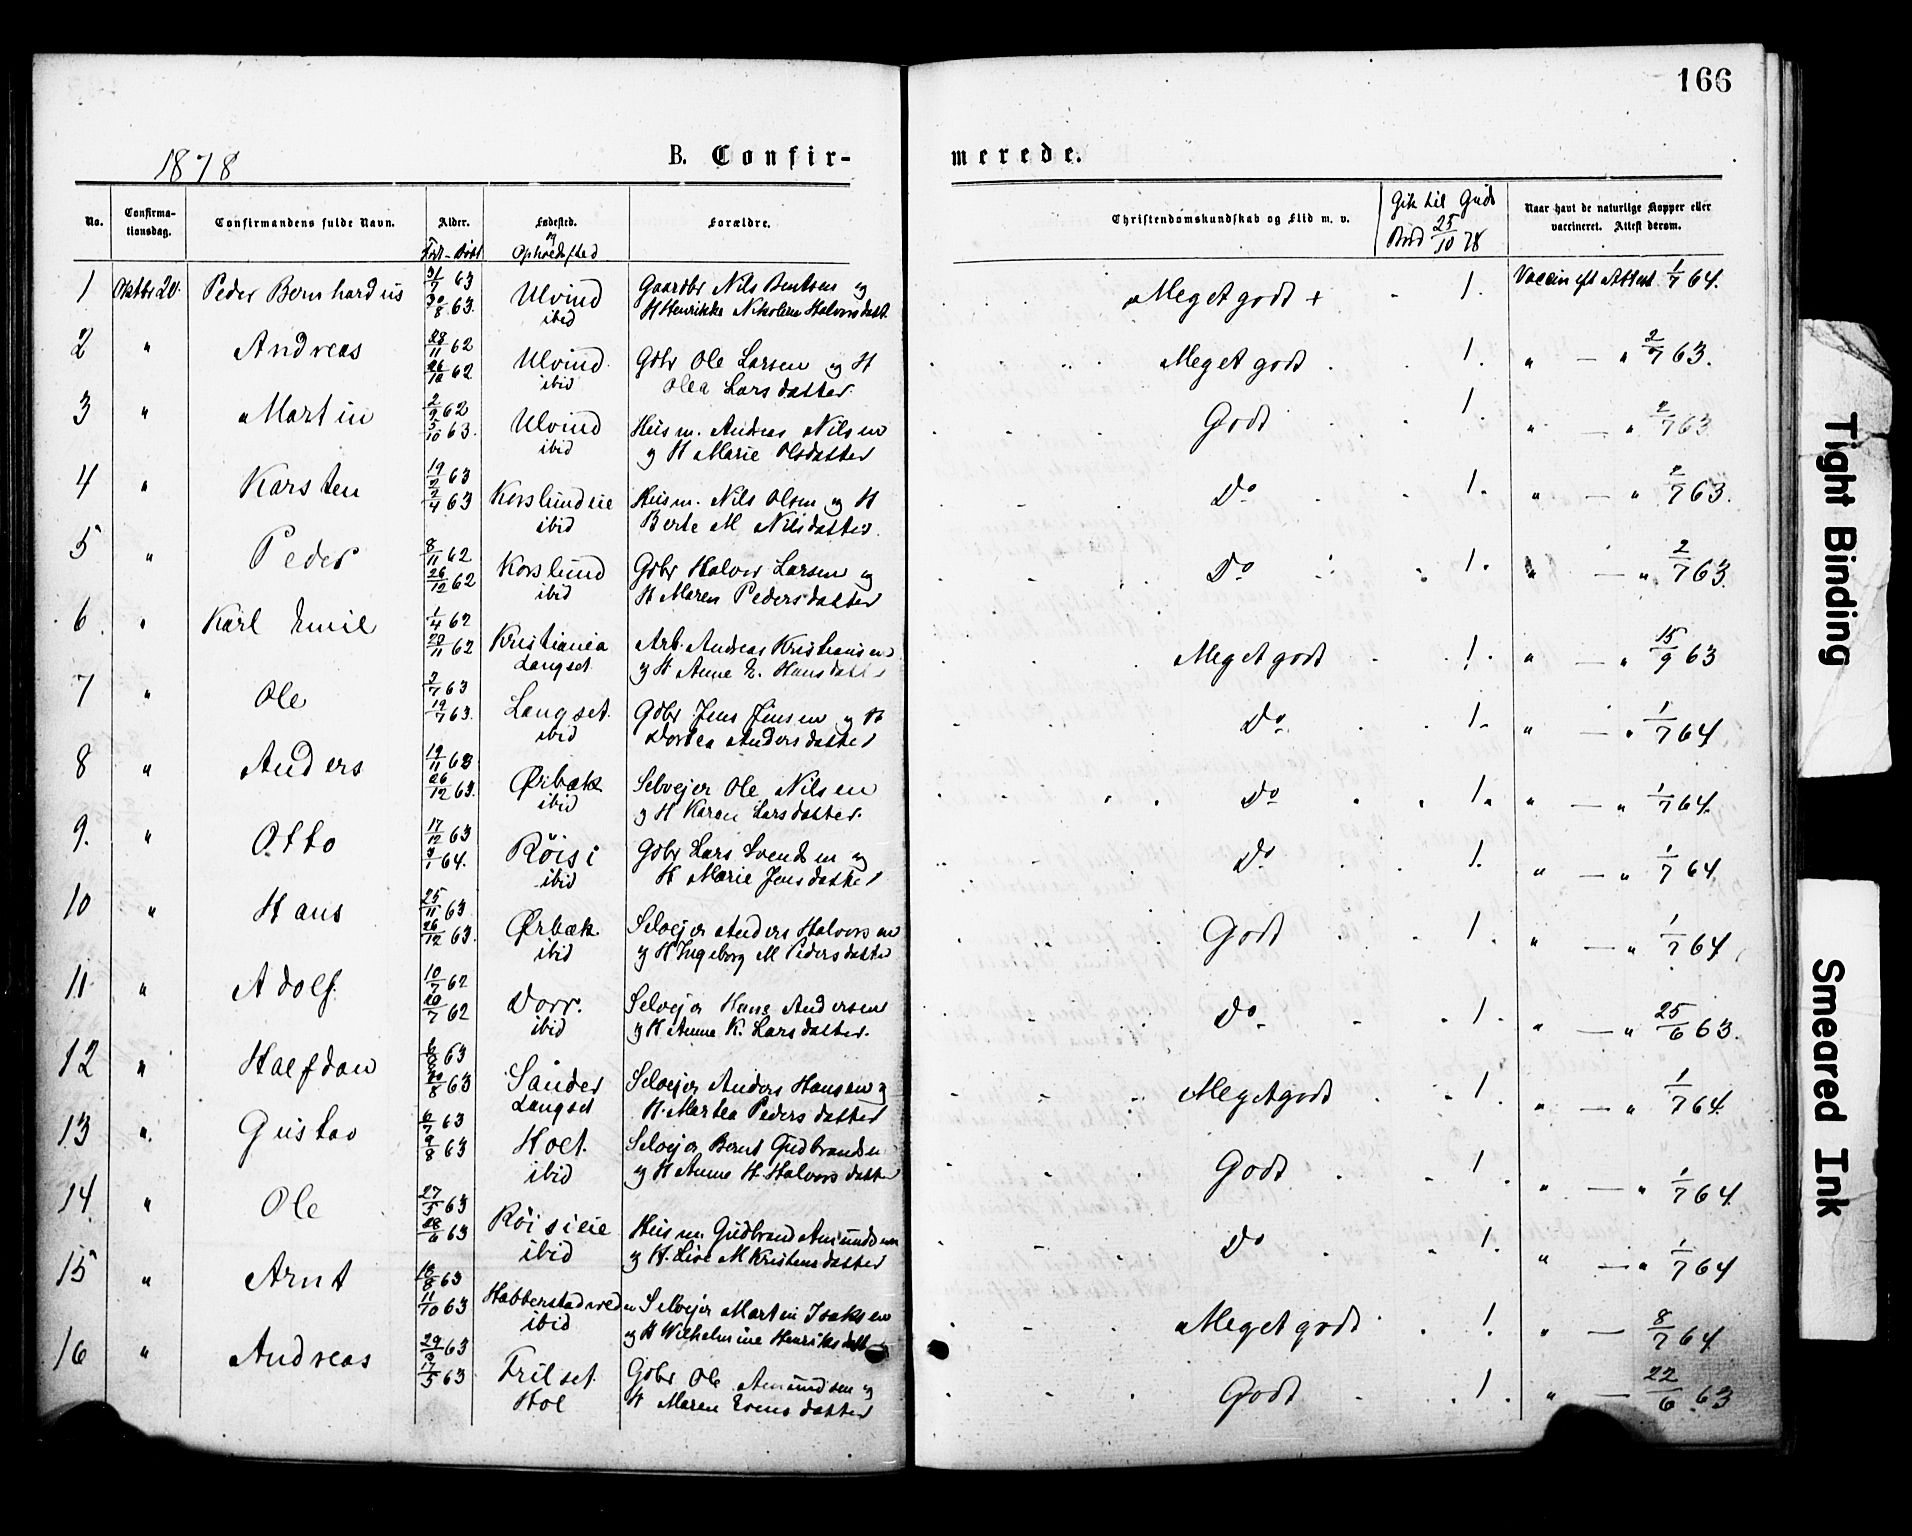 166
1878 B. Confir- merede.
No. Confirma-tionsdag. Confirmandens fulde Navn. Alder. Fødested. og Opholdssted Forældre. Christendomskundskab og Flid m. v. Gik til Guds Bord 25/10 78 Naar havt de naturlige Kopper eller vaccineret. Attest derom.
Født - Døbt
1 Oktbr 20. Peder Bernhardus 31/7 63 30/8 63. Ulvind ibid Gaardbr Nils Bentsen og H Henrikke Nikoline Halvorsdatt. Meget godt + 1. Vaccin eft Attest 1/7 64.
2 " Andreas 28/11 62 26/12 62 Ulvind ibid Gdbr Ole Larsen og H Olea Larsdatter. Meget godt 1. " — " 2/7 63.
3 " Martin 2/9 62 5/10 63. Ulvind ibid Husm. Andreas Nilsen og H Marie Olsdatter Godt 1. " — " 2/7 63
4 " Karsten 19/2 63 2/4 63 Korslundeie ibid Husm. Nils Olsen og H Berte M Nilsdatter. Do 1. " — " 2/7 63.
5 " Peder 8/11 62 26/12 62 Korslund ibid Gdbr Halvor Larsen og H Maren Pedersdatter Do 1. " — " 2/7 63.
6. " Karl Emil 1/4 62 20/11 62 Kristiania Langset Arb. Andreas Kristiansen og H Anne E. Hansdatter Meget godt 1. " — " 15/9 63
7 " Ole 2/7 63 19/7 63. Langset. ibid Gdbr Jens Jensen og H Dortea Andersdatter Do. 1. " — " 1/7 64.
8 " Anders 19/11 63 26/12 63. Ørbæk ibid Selvejer Ole Nilsen og H Karen Larsdatter. Do 1. " — " 1/7 64.
9. " Otto 17/12 63 /1 64. Röisi ibid Gdbr Lars Svendsen og H Marie Jensdatter Do 1. " — " 1/7 64
10 " Hans 25/11 63 26/12 63. Ørbæk. ibid Selvejer Anders Halvorsen og H Ingeborg M Pedersdatter Godt 1. " — " 1/7 64
11 " Adolf. 10/7 62 20/7 62 Dorr. ibid Selvejer Hans Andersen og H Anne K. Larsdatter. Do 1. " — " 25/6 63.
12 " Halfdan 63 /8 63 Sander Langset Selvejer Anders Hansen og H. Martea Pedersdatter Meget godt 1. " — " 1/7 64.
13 " Gustav 6/7 63 9/8 63 Hol. ibid Selvejer Bernt Gudbrandsen og H Anne H. Halvorsdatter Godt 1. " — " 1/7 64.
14 " Ole 27/5 63 28/6 63 Röisieie ibid Husm. Gudbrand Amundsen og H. Live M Kristensdatter Do 1. " — " 1/7 64
15 " Arnt 18/8 63 11/10 63 Habberstadveden ibid Selvejer Martin Isaksen og H Wilhelmine Henriksdatt Meget godt 1. " — 8/7 64
16 " Andreas 29/3 63 17/5 63 Frilset. Hol Gdbr Ole Amundsen og H Maren Evensdatter Godt 1. " — 22/6 63
Tight Binding
Smeared Ink